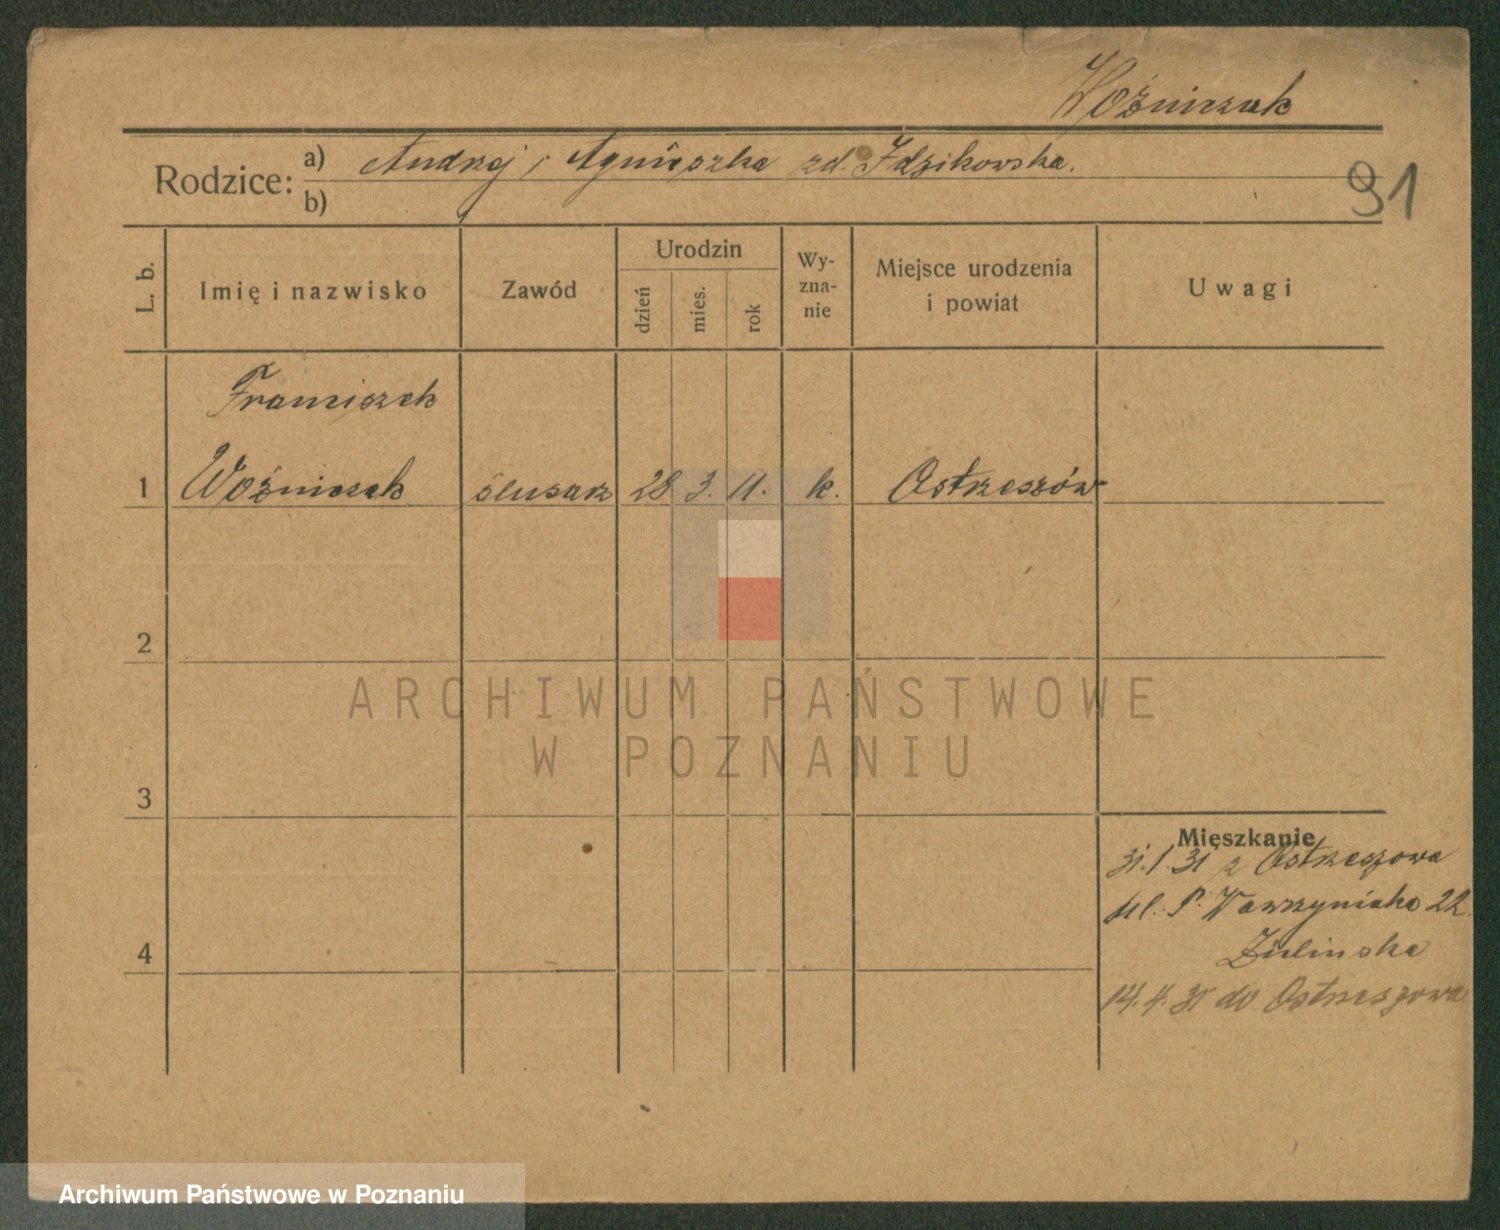 Woźniczak
Rodzice: a) Andrzej i Agnieszka zd. Idzikowska.
b)
91
L. b.
Imię i nazwisko
Zawód
Urodzin
dzień
mies.
rok
Wy-
zna-
nie
Miejsce urodzenia
i powiat
Uwagi
Franciszek
1 Woźniczak ślusarz 28. 3. 11. k. Ostrzeszów
2
ARCHIWUM PAŃSTWOWE
W POZNANIU
3
Mieszkanie
31.1.31 z Ostrzeszowa
ul. P. Wawrzyniaka 22.
4
Zielinska
14.4.31 do Ostrzeszowa
Archiwum Państwowe w Poznaniu